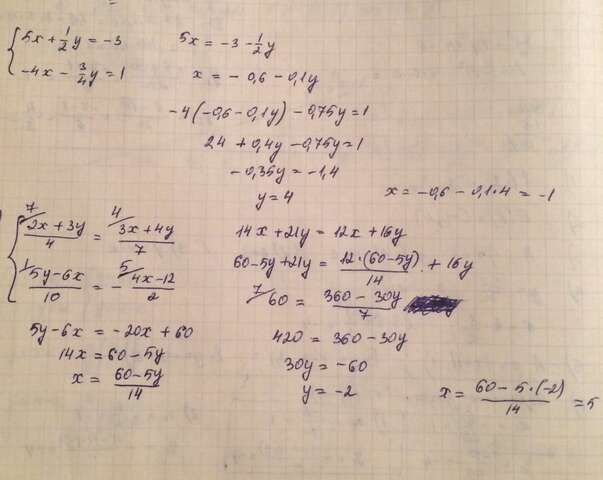 5x + 1/2 y = -3
-4x - 3/4 y = 1
5x = -3 - 1/2 y
x = -0,6 - 0,1y
-4(-0,6 - 0,1y) - 0,75y = 1
2,4 + 0,4y - 0,75y = 1
-0,35y = -1,4
y = 4
x = -0,6 - 0,1·4 = -1
7/ (2x + 3y)/4 = 4/ (3x + 4y)/7
1/ (5y - 6x)/10 = - 5/ (4x - 12)/2
5y - 6x = -20x + 60
14x = 60 - 5y
x = (60 - 5y)/14
14x + 21y = 12x + 16y
60 - 5y + 21y = (12·(60 - 5y))/14 + 16y
7/ 60 = (360 - 30y)/7
420 = 360 - 30y
30y = -60
y = -2
x = (60 - 5·(-2))/14 = 5